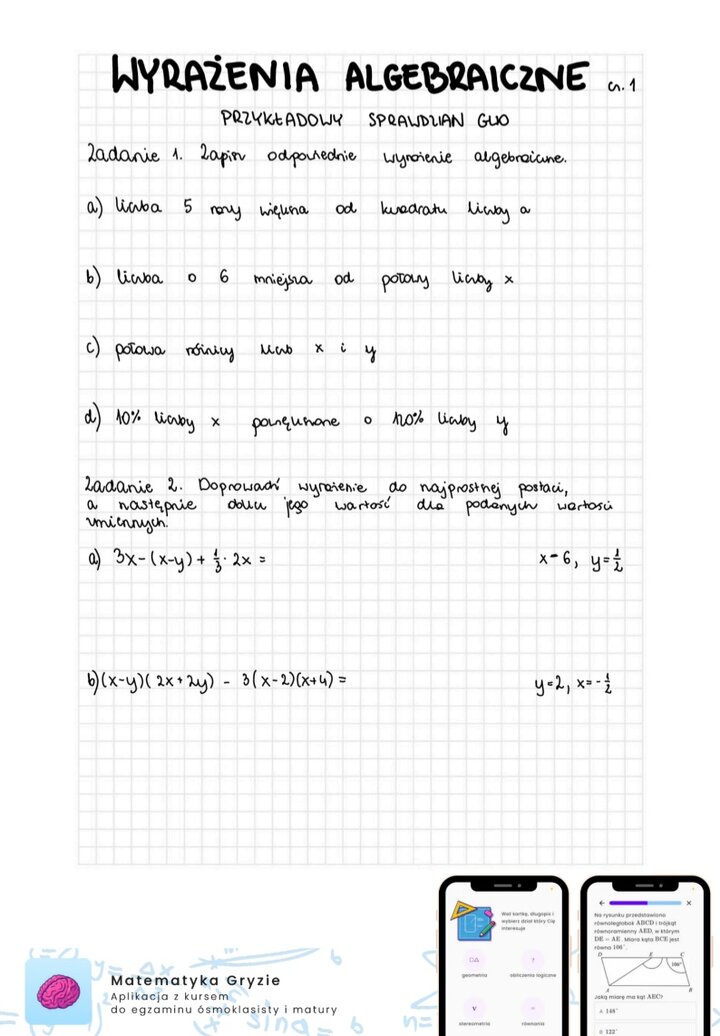 WYRAŻENIA ALGEBRAICZNE cz. 1
PRZYKŁADOWY SPRAWDZIAN GWO
Zadanie 1. Zapisz odpowiednie wyrażenie algebraiczne.
a) liczba 5 razy większa od kwadratu liczby a
b) liczba o 6 mniejsza od połowy liczby x
c) połowa różnicy liczb x i y
d) 10% liczby x powiększone o 120% liczby y
Zadanie 2. Doprowadź wyrażenie do najprostszej postaci,
a następnie oblicz jego wartość dla podanych wartości
zmiennych.
a) 3x-(x-y)+ 1/3 · 2x = x=6, y=1/2
b)(x-y)(2x+2y) - 3(x-2)(x+4) = y=2, x=-1/2
Matematyka Gryzie
Aplikacja z kursem
do egzaminu ósmoklasisty i matury
Weź kartkę, długopis i
wybierz dział który Cię
interesuje
geometria obliczenia logiczne
stereometria równania
Na rysunku przedstawiono
równoległobok ABCD i trójkąt
równoramienny AED, w którym
DE = AE. Miara kąta BCE jest
równa 106°.
D E C
106°
A B
Jaką miarę ma kąt AEC?
A 148°
B 122°